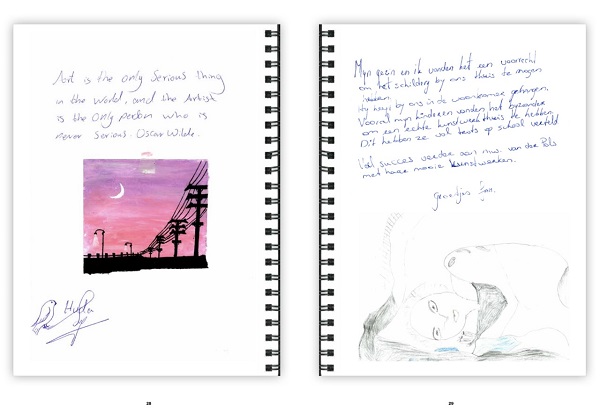 Art is the only Serious thing
in the world. and the Artist
is the only person who is
never serious. Oscar Wilde.
Huda
28
Mijn gezin en ik vonden het een voorrecht
om het schilderij bij ons thuis te mogen
hebben.
Hij heeft bij ons in de woonkamer gehangen.
Vooral mijn kinderen vonden het bijzonder
om een echte kunstwerk thuis te hebben
Dit hebben ze wel trots op school verteld
Veel succes verder aan mw. van der Pols
met haar mooie kunstwerken.
Groetjes
29